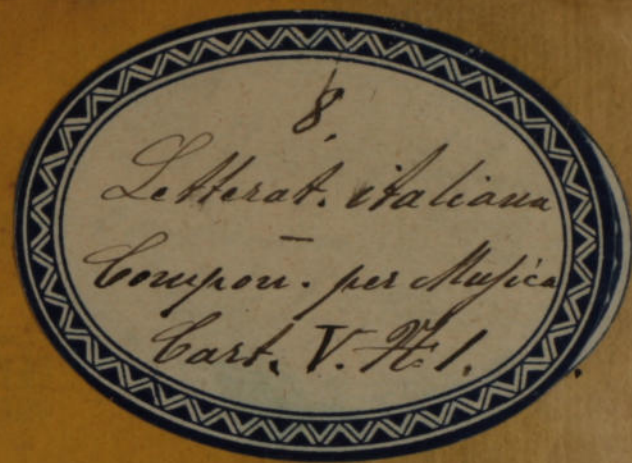 8.
Letterat. italiana
—
Compon. per Musica
Cart. V. N: 1.